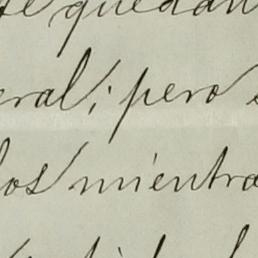 se quedan
eral; pero
los mientra